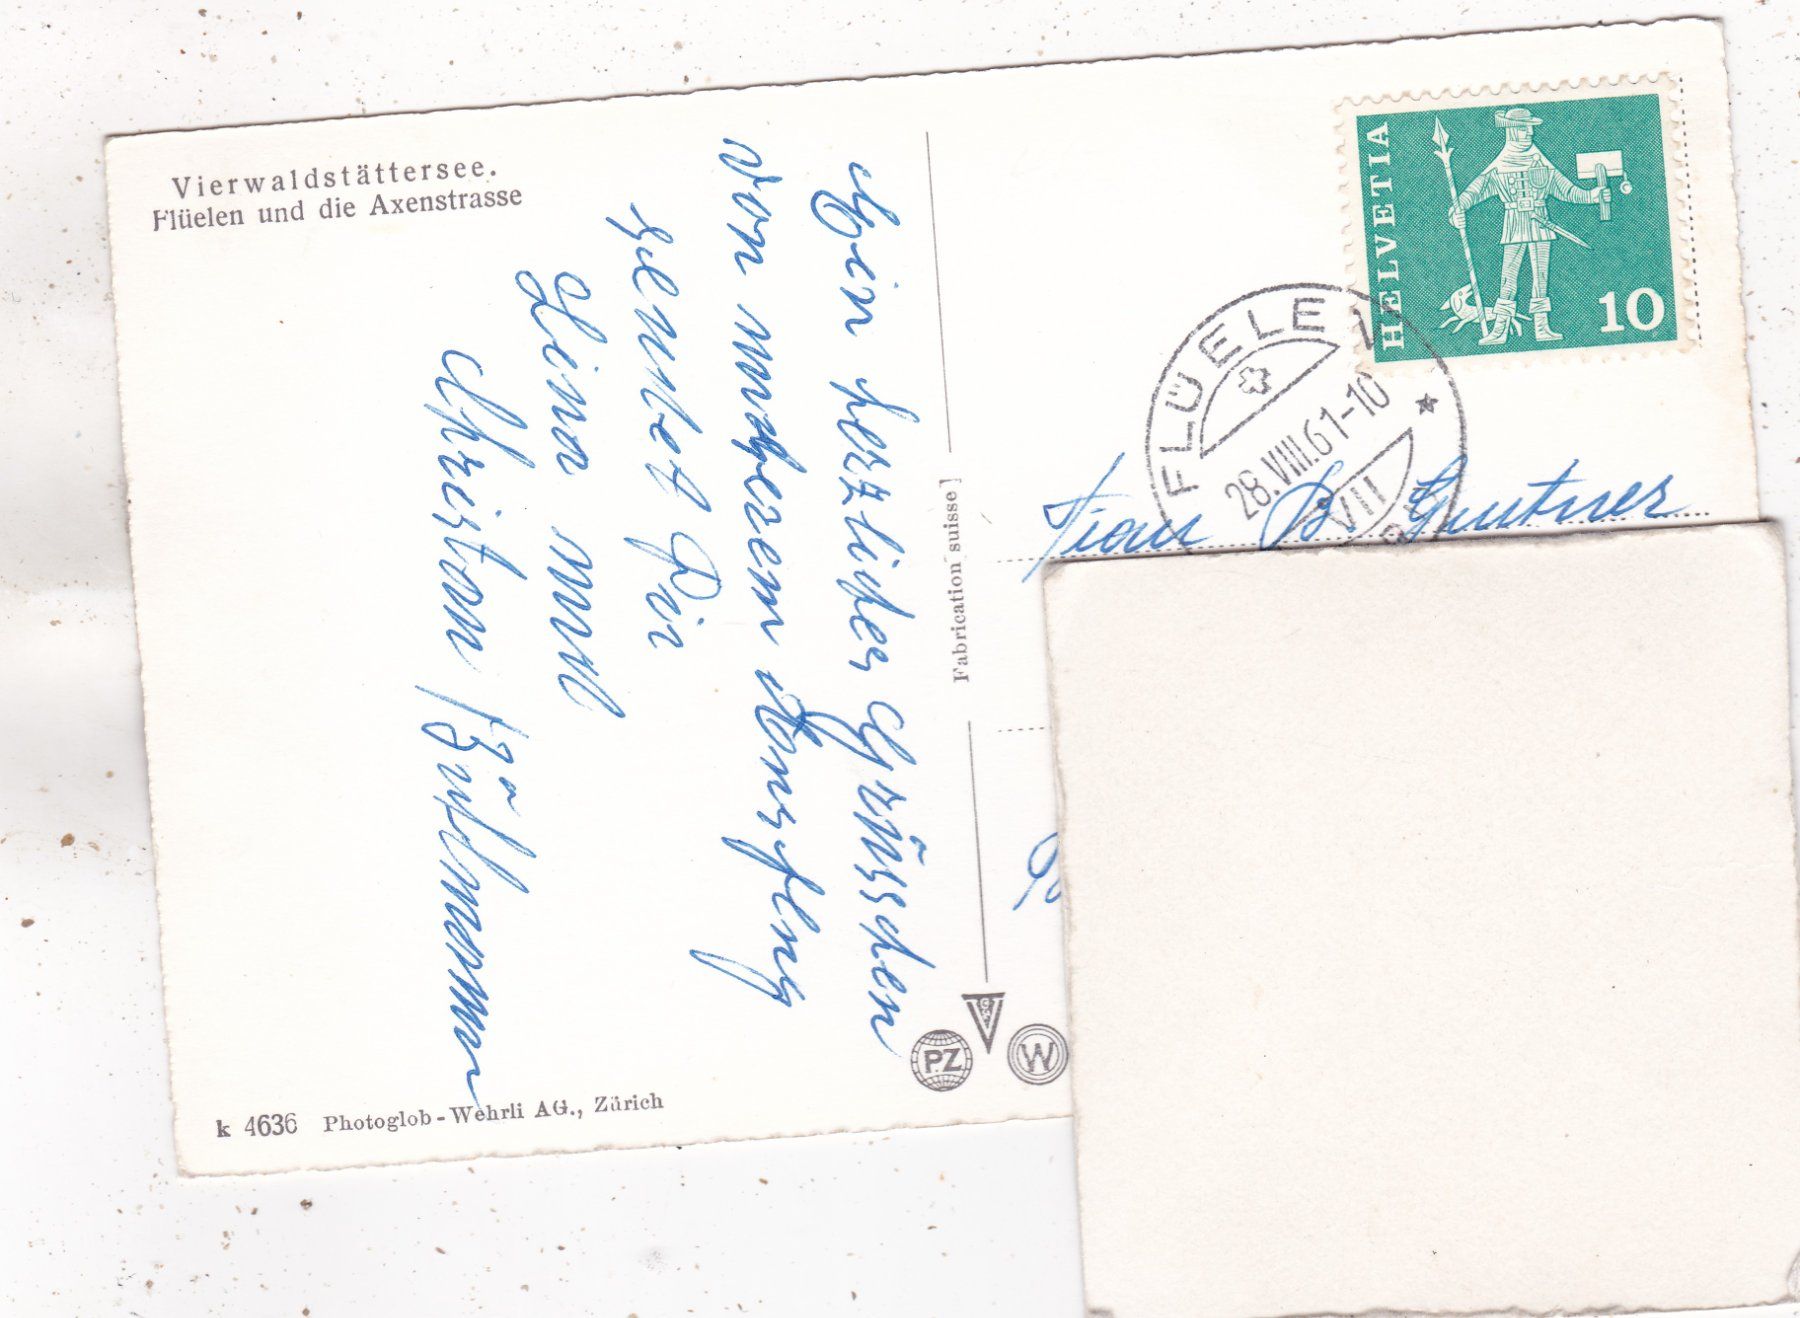 Vierwaldstättersee.
Flüelen und die Axenstrasse
Ein herzliches Grüsschen
von unserem Ausflug
sendet Dir
Lina und
Christian
k 4636 Photoglob-Wehrli AG., Zürich
Fabrication suisse
PZ
W
HELVETIA
10
FLÜELEN
28.VIII.61-10
VIII
Frau B. Gintner